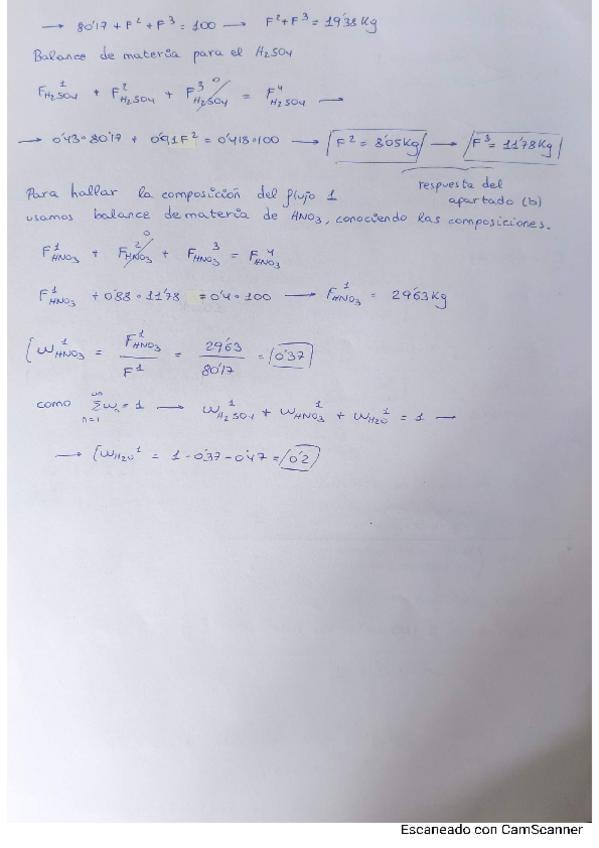 → 80'17 + F² + F³ = 100 → F² + F³ = 19'83 Kg
Balance de materia para el H₂SO₄
F¹H₂SO₄ + F²H₂SO₄ + F³H₂SO₄ 0 = F⁴H₂SO₄ →
→ 0'43 · 80'17 + 0'91F² = 0'418 · 100 → F² = 8'05 Kg → F³ = 11'78 Kg
respuesta del
apartado (b)
Para hallar la composición del flujo 1
usamos balance de materia de HNO₃, conociendo las composiciones.
F¹HNO₃ + F²HNO₃ 0 + F³HNO₃ = F⁴HNO₃
F¹HNO₃ + 0'88 · 11'78 = 0'4 · 100 → F¹HNO₃ = 29'63 Kg
W¹HNO₃ = F¹HNO₃ / F¹ = 29'63 / 80'17 = 0'37
como Σ n=1 Wₙ = 1 → W¹H₂SO₄ + W¹HNO₃ + W¹H₂O = 1 →
→ WH₂O¹ = 1 - 0'37 - 0'47 = 0'2
Escaneado con CamScanner